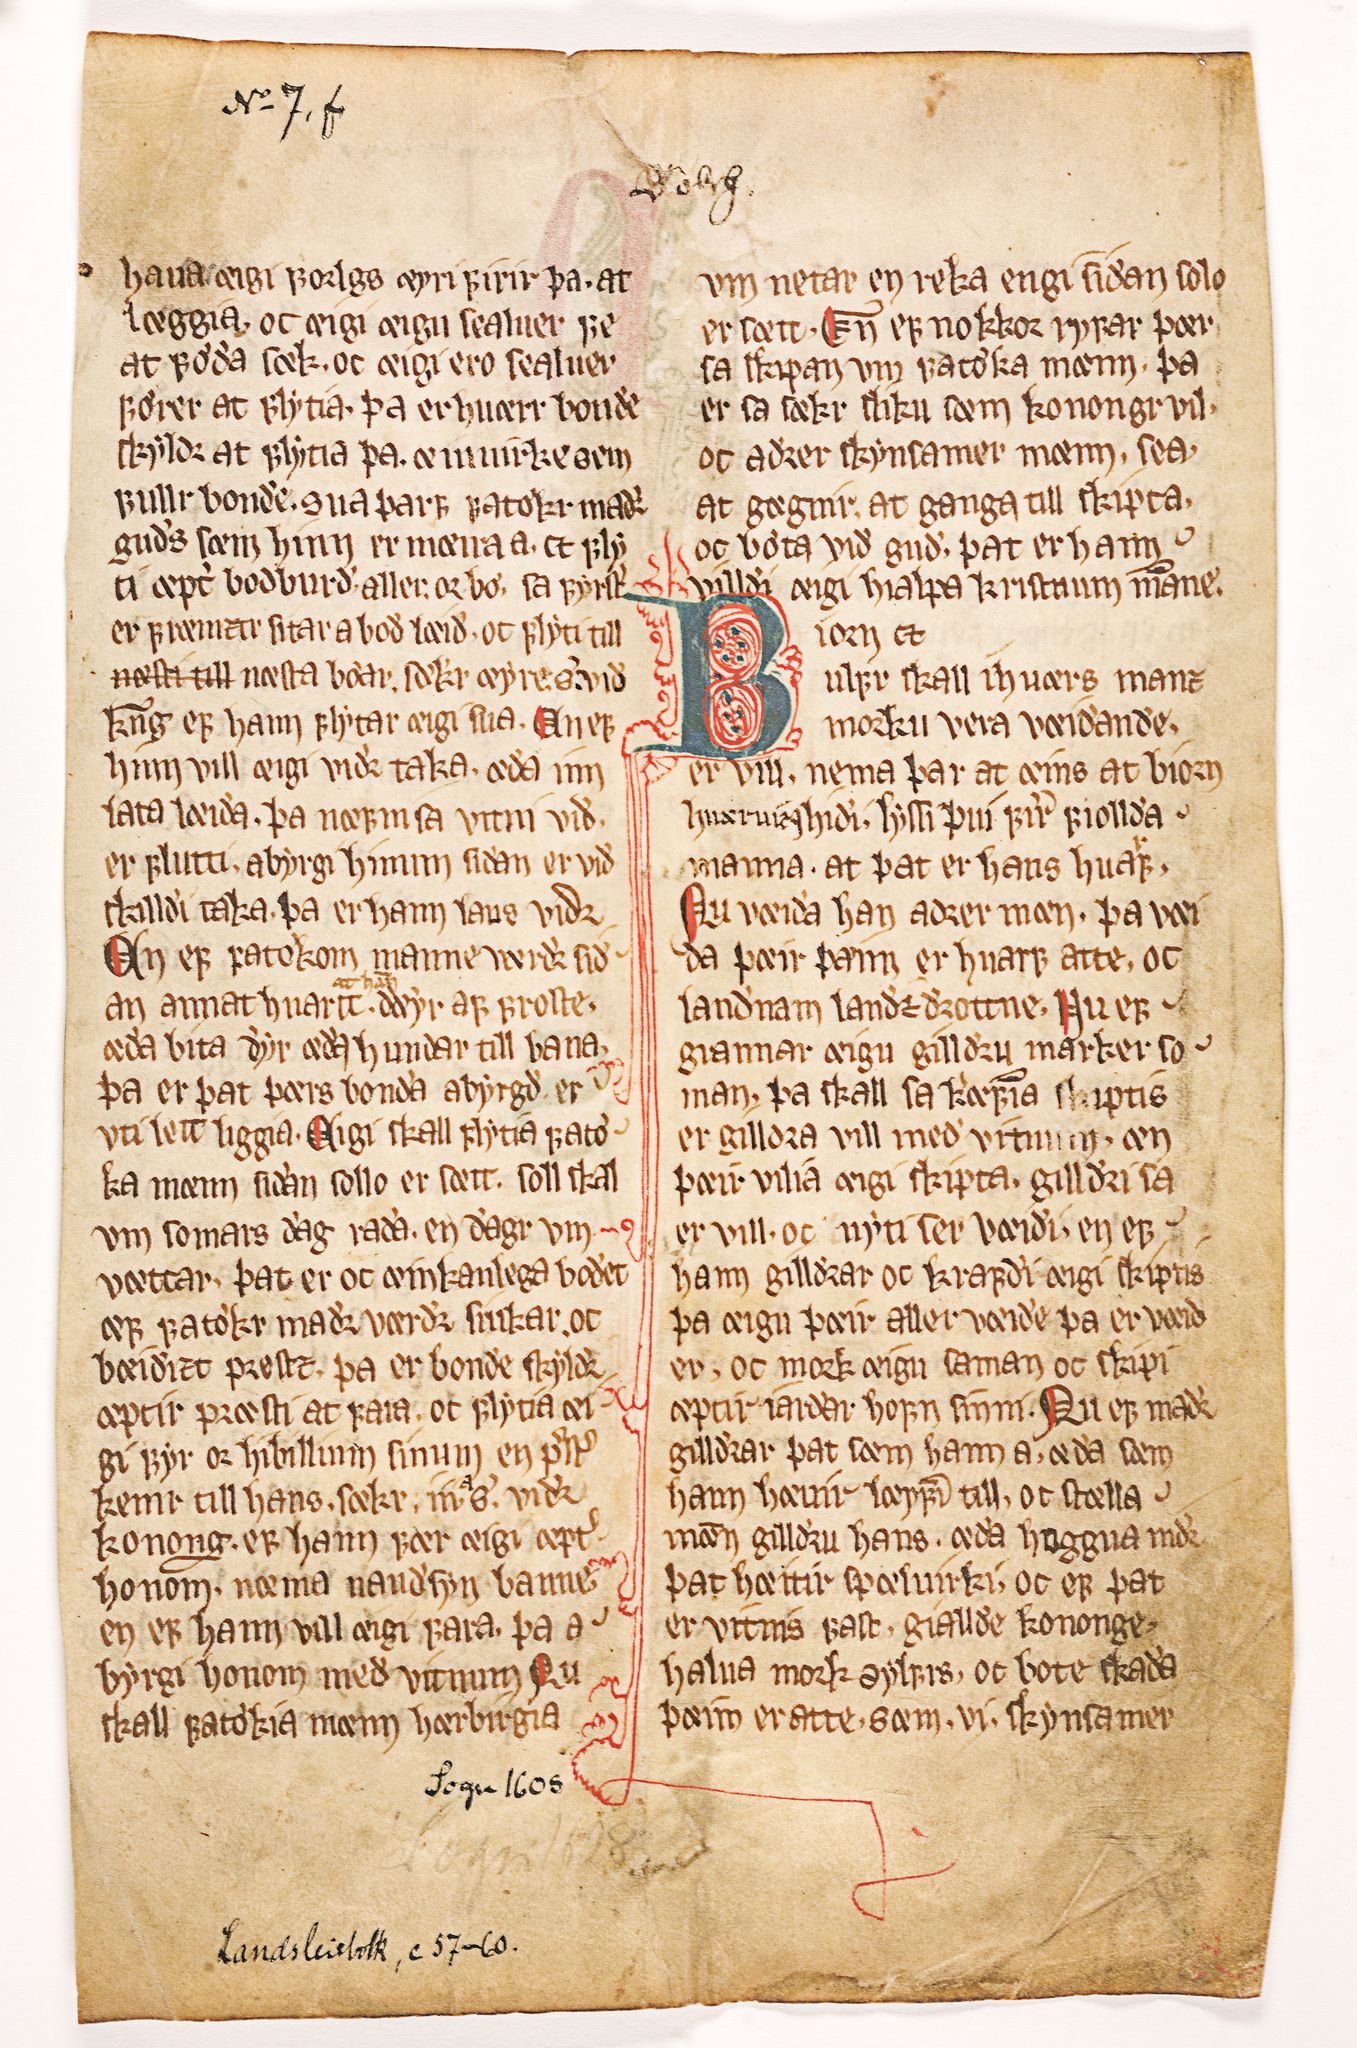 No 7, f
Bolk
haua æigi ꝼorlgs œyri ꝼirir þa. at
læggia. oc æigi æigu sealuer ꝼe
at ꝼǿða sæk. oc æigi ero sealuer
ꝼǿrer at ꝼlytia. þa er huærr bonde
skyldr at ꝼlytia þa. æinuirke sem
ꝼullr bonde. sua þarꝼ ꝼatǿkr maðr
guðs sæm hinn er mæira a. et ꝼly
ti æpt bodburd aller or bǿ. sa ꝼyrst
er ꝼræmztr sitar a boðlæið. oc ꝼlyti till
næsti till næsta bǿar. sækr œyre. s. við
kng eꝼ hann ꝼlytar æigi sua. En eꝼ
hinn vill æigi viðr taka. æða inn
lata læiða. þa næꝼni sa vitni við.
er ꝼlutti. abyrgi hinum siðan er við
skilldi taka. þa er hann laus viðr
En eꝼ ꝼatǿkom manne værðr sið
an annat huart at han dǿyr aꝼ ꝼroste.
æða bita dyr æða hundar till bana.
þa er þat þærs bonda abyrgð er
vti lett liggia. Æigi skall ꝼlytia ꝼatǿ
ka mænn siðan sollo er sætt. soll skal
vm somars dag raða. en dagr vm
vættar. þat er oc æinkanlega boðet
æꝼ ꝼatǿkr maðr værðr siukar. oc
bæiðizt prestz. þa er bonde skyldr
æptir præsti at ꝼara. oc ꝼlytia æi
gi ꝼyr or hibillium sinum en prstr
kemr till hans. sækr. iii a s. viðr
konong. eꝼ hann ꝼær æigi æpt
honom. næma nauðsyn banne
en eꝼ hann vill æigi ꝼara. þa a
byrgi honom með vitnum Nu
skall ꝼatǿkia mænn hærbirgia
vm netar en reka engi siðan solo
er sætt. En eꝼ nokkor ryꝼar þær
sa skipan vm ꝼatǿka mænn. þa
er sa sækr sliku sæm konongr vil.
oc aðrer skynsamer mænn. sea
at gægnir. at ganga till skipta.
oc bǿta við guð. þat er hann
villdi æigi hialpa kristnum mane.
Biorn et
ulꝼr skall ihuærs manz
morku vera væiðande.
er vill. nema þar at æins at biorn
huæruizshiði. lysi þui ꝼir ꝼiollda
manna. at þat er hans huarꝼ.
Nu væiða han aðrer mæn. þa væi
da þæir þann er huarꝼ atte. oc
landnam landzdrottne. Nu eꝼ
grannar æigu gilldru marker so
man. þa skall sa kræꝼia skiptis
er gilldra vill með vitnum. æn
þæir vilia æigi skipta. gilldri sa
er vill. oc nyti ser væiði. en eꝼ
hann gilldrar oc kraꝼdi æigi skiptis
þa æigu þæir aller væiðe þa er væið
er. oc mork æigu saman oc skipi
æptir iarðar hoꝼn sinni. Nu eꝼ maðr
gilldrar þat sæm hann a. æða sæm
hann hæuir læyꝼi till. oc stælla
mæn gilldru hans. æða hoggua niðr
þat hæitir spæluirki. oc eꝼ þat
er vitnis ꝼast. giallde kononge.
halua mork sylꝼrs. oc bote skaða
þæim er atte. sæm. vi. skynsamer
Sogn 1608
Sogn 1608
Landsleiebolk, c 57-60.